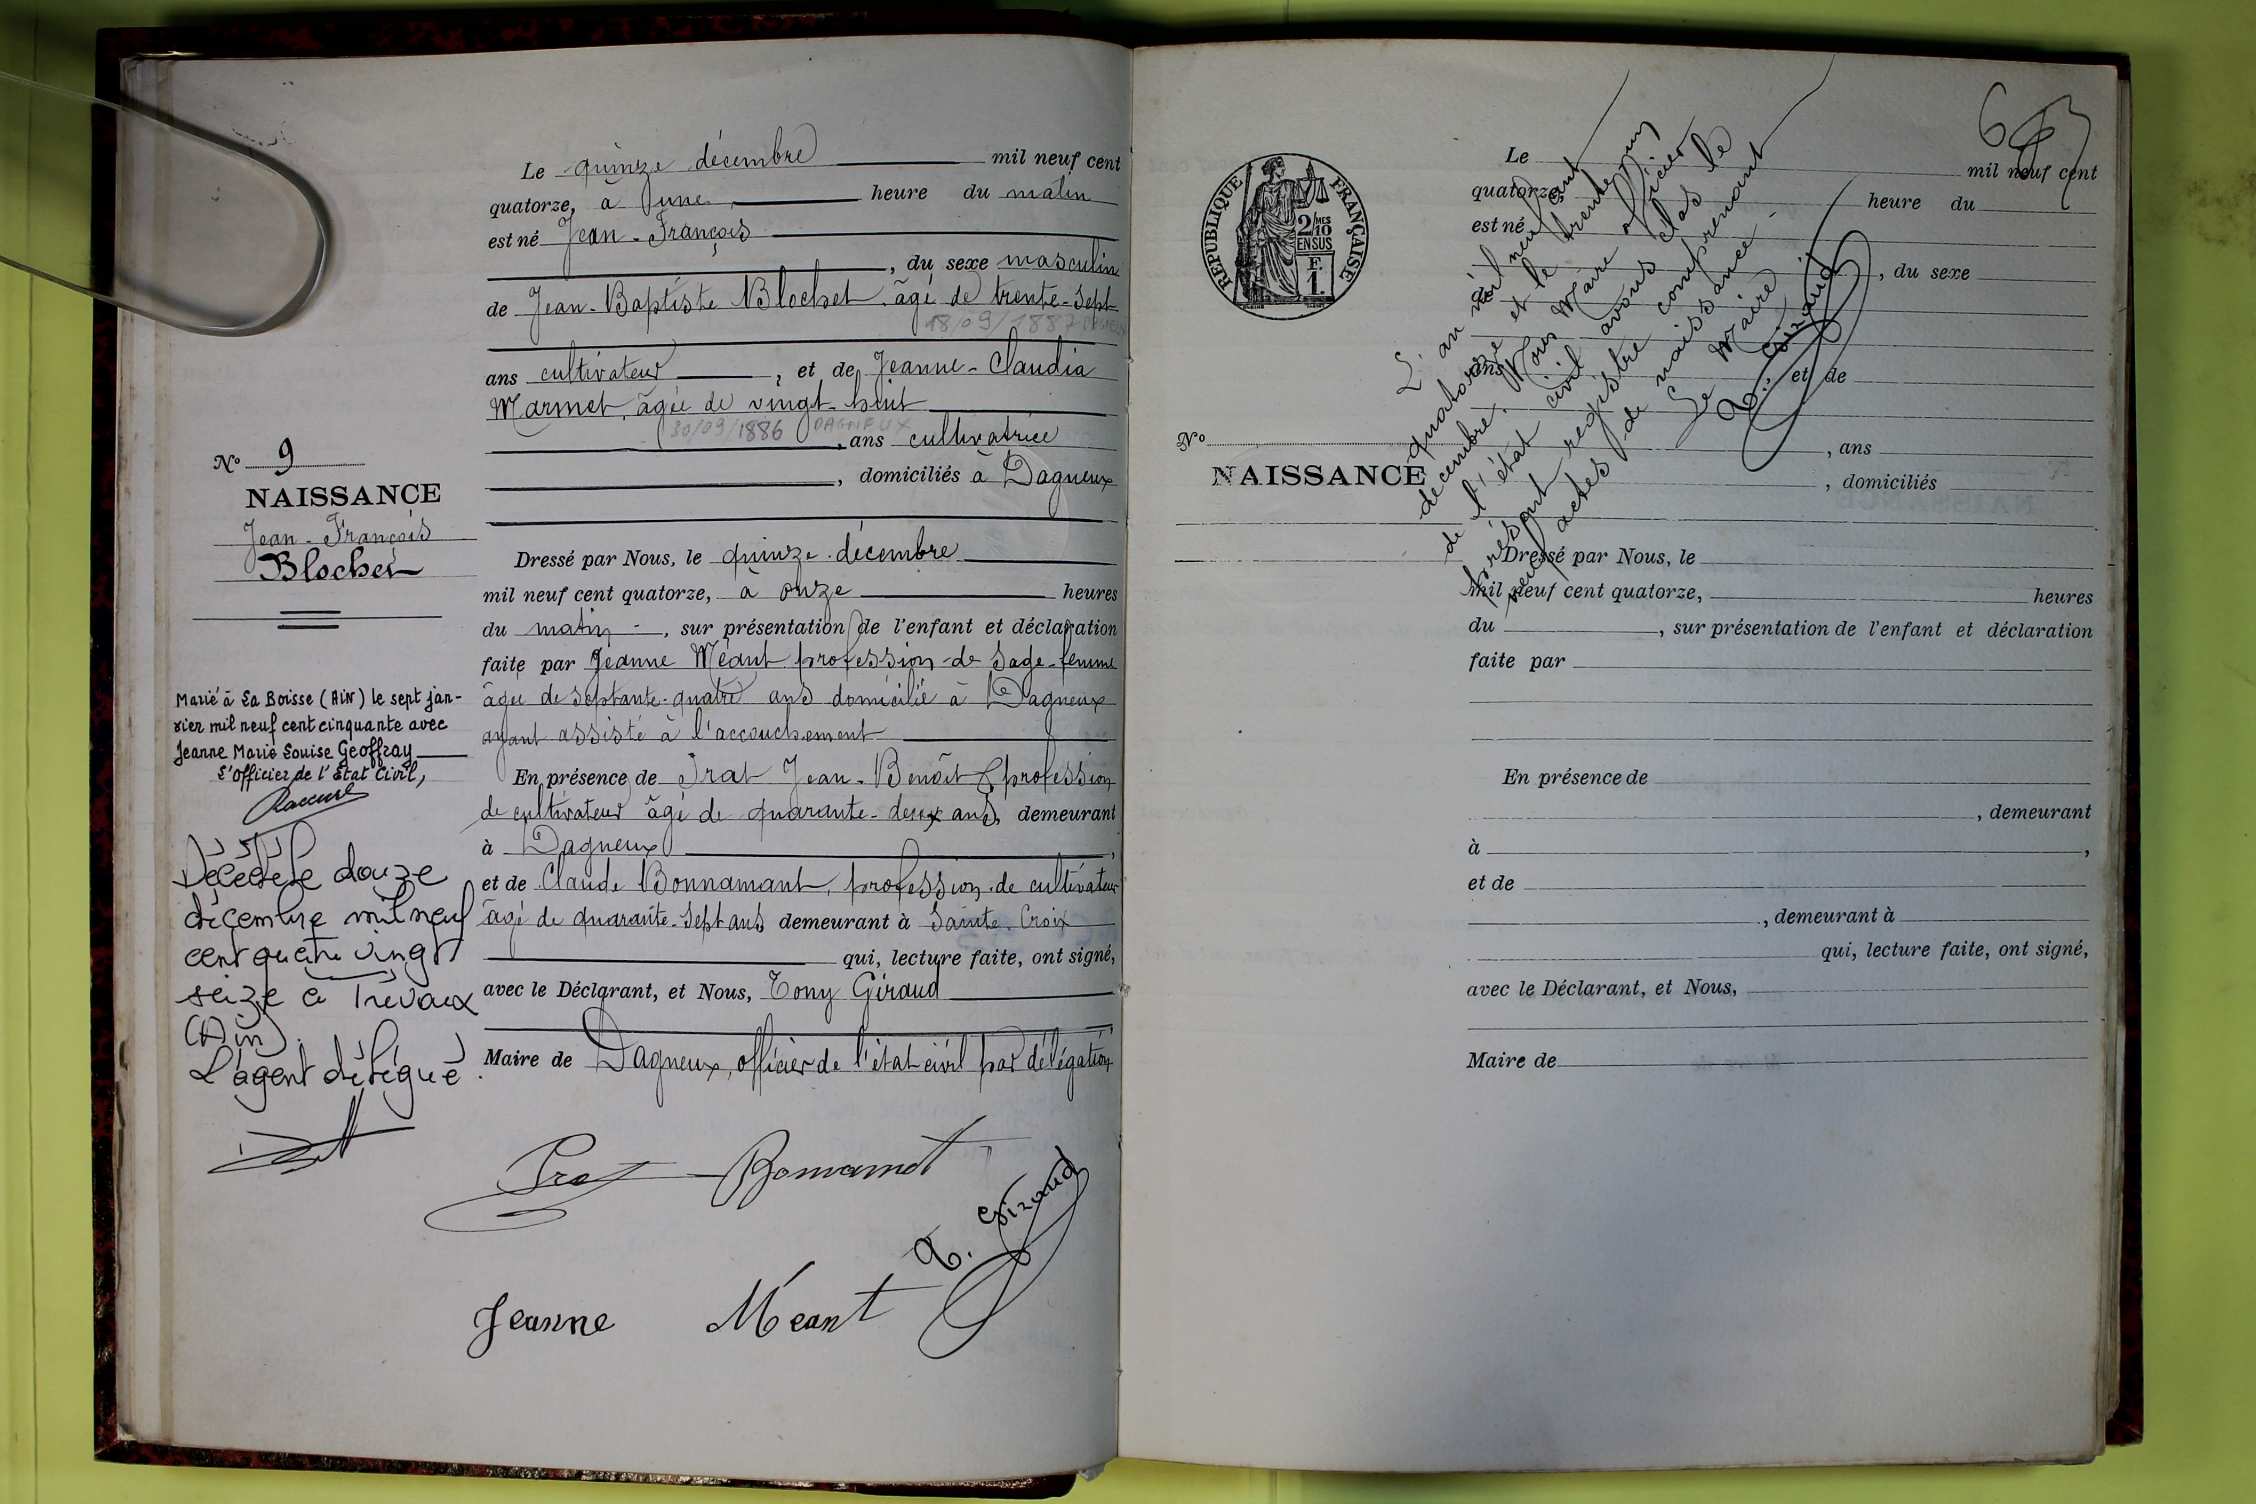 Le quinze décembre mil neuf cent
quatorze, à une heure du matin
est né Jean-François
, du sexe masculin
de Jean-Baptiste Blochet, âgé de trente-sept
18/09/1887 DAGNEUX
ans cultivateur, et de Jeanne-Claudia
Marmet, âgée de vingt-huit
30/09/1886 DAGNEUX
, ans cultivatrice
, domiciliés à Dagneux
Dressé par Nous, le quinze décembre
mil neuf cent quatorze, à onze heures
du matin, sur présentation de l'enfant et déclaration
faite par Jeanne Méant profession de sage-femme
âgée de septante-quatre ans domicilié à Dagneux
ayant assisté à l'accouchement
En présence de Prat Jean-Benoît profession
de cultivateur âgé de quarante-deux ans, demeurant
à Dagneux,
et de Claude Bonnamant, profession de cultivateur
âgé de quarante-sept ans demeurant à Sainte-Croix
qui, lecture faite, ont signé,
avec le Déclarant, et Nous, Tony Giraud
Maire de Dagneux, officier de l'état civil par délégation
Prat Bonnamant
T. Giraud
Jeanne Méant
No 9
NAISSANCE
Jean-François
Blochet
Marié à La Boisse (AIN) le sept jan-
vier mil neuf cent cinquante avec
Jeanne Marie Louise Geoffray
L'Officier de l'Etat Civil,
Décédé le douze
décembre mil neuf
cent quatre vingt
seize à Trévoux
(Ain).
L'agent délégué.
653
RÉPUBLIQUE FRANÇAISE
2/10 MES
EN SUS
F.
1.
Le mil neuf cent
quatorze, heure du
est né
, du sexe
de
ans et de
, ans
, domiciliés
No
NAISSANCE
Dressé par Nous, le
mil neuf cent quatorze, heures
du , sur présentation de l'enfant et déclaration
faite par
En présence de
, demeurant
à ,
et de
, demeurant à
qui, lecture faite, ont signé,
avec le Déclarant, et Nous,
Maire de
L'an mil neuf cent
quatorze et le trente un
décembre. Nous Maire officier
de l'état civil avons clos le
présent registre comprenant
neuf actes de naissance.
Le Maire
T. Giraud